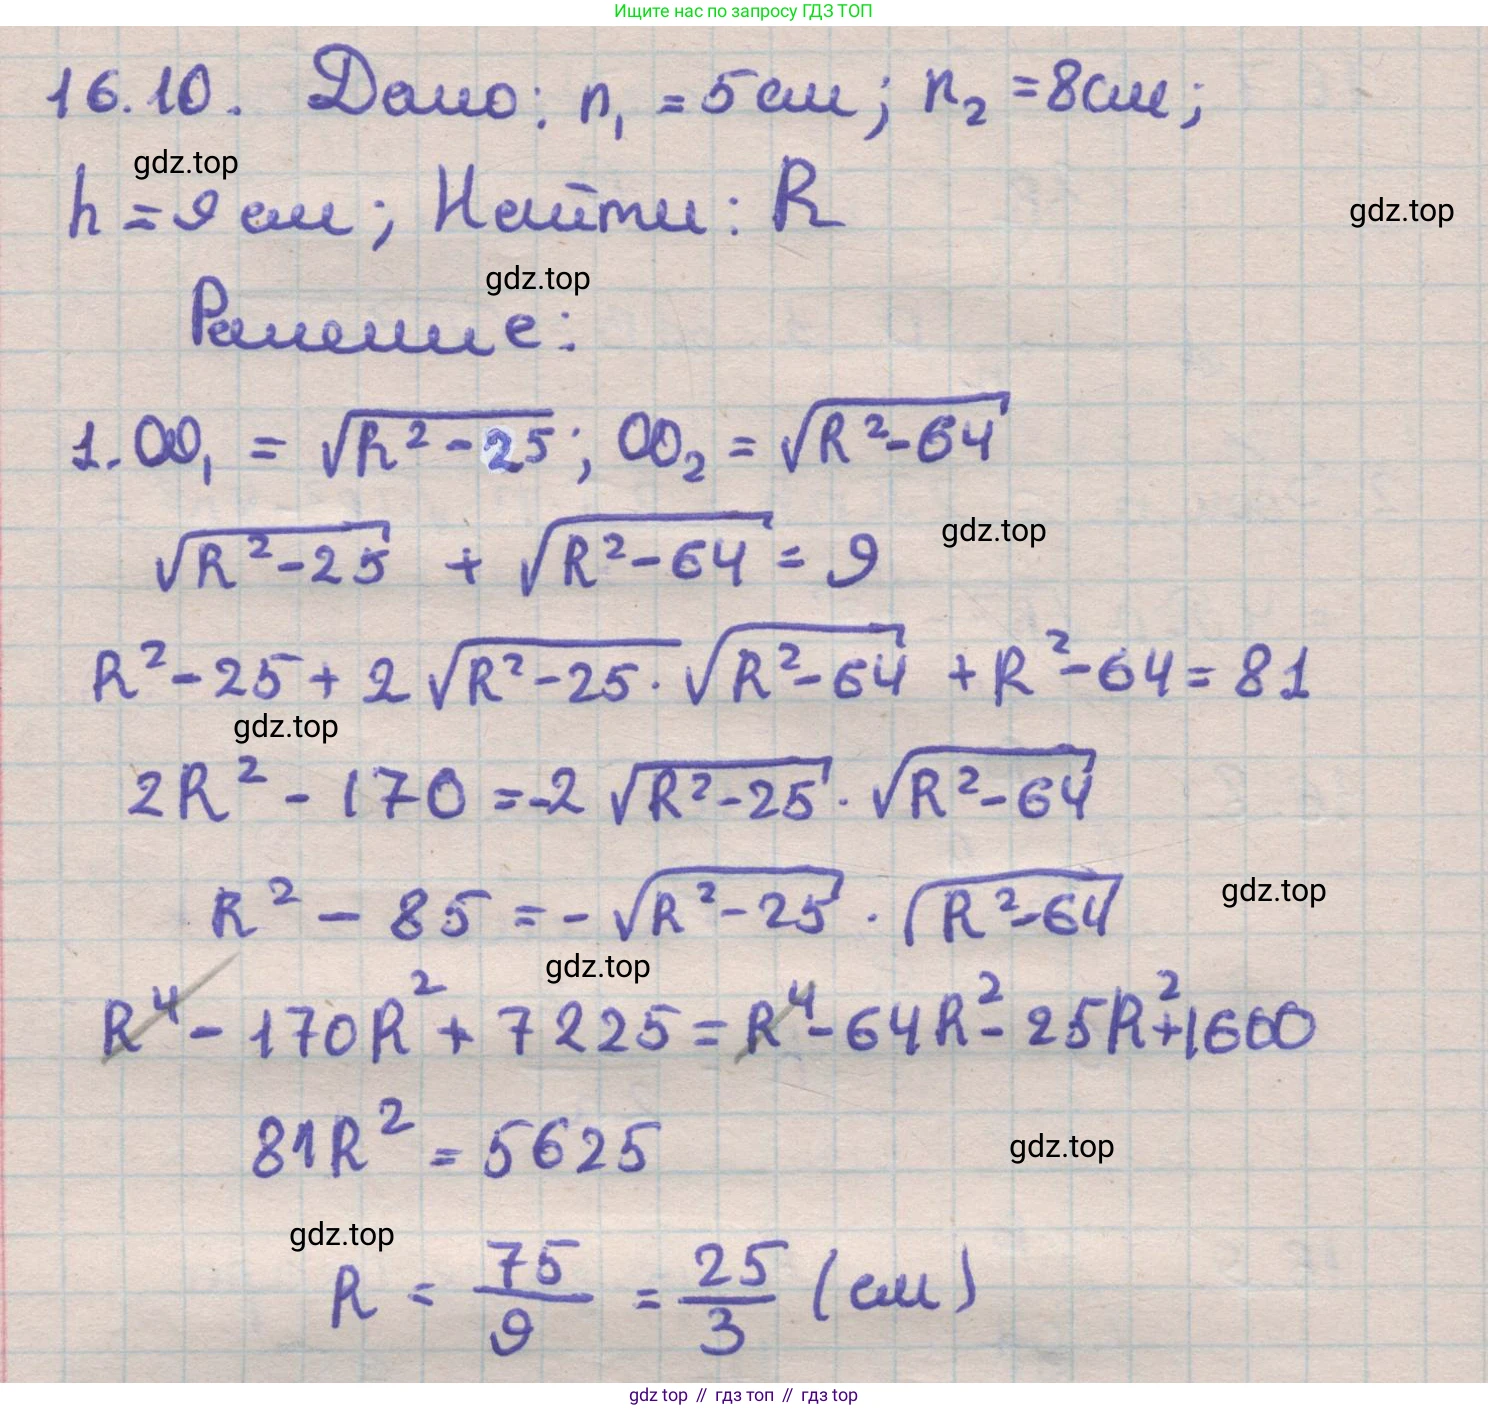 Ищите нас по запросу ГДЗ ТОП
16.10. Дано: r₁ = 5 см; r₂ = 8 см;
gdz.top
h = 9 см; Найти: R
gdz.top
gdz.top
Решение:
1. OO₁ = √(R² - 25); OO₂ = √(R² - 64)
√(R² - 25) + √(R² - 64) = 9
gdz.top
R² - 25 + 2 √(R² - 25) · √(R² - 64) + R² - 64 = 81
gdz.top
2R² - 170 = -2 √(R² - 25) · √(R² - 64)
R² - 85 = - √(R² - 25) · √(R² - 64)
gdz.top
gdz.top
R⁴ - 170R² + 7225 = R⁴ - 64R² - 25R² + 1600
81R² = 5625
gdz.top
gdz.top
R = 75/9 = 25/3 (см)
gdz top // гдз топ // gdz top